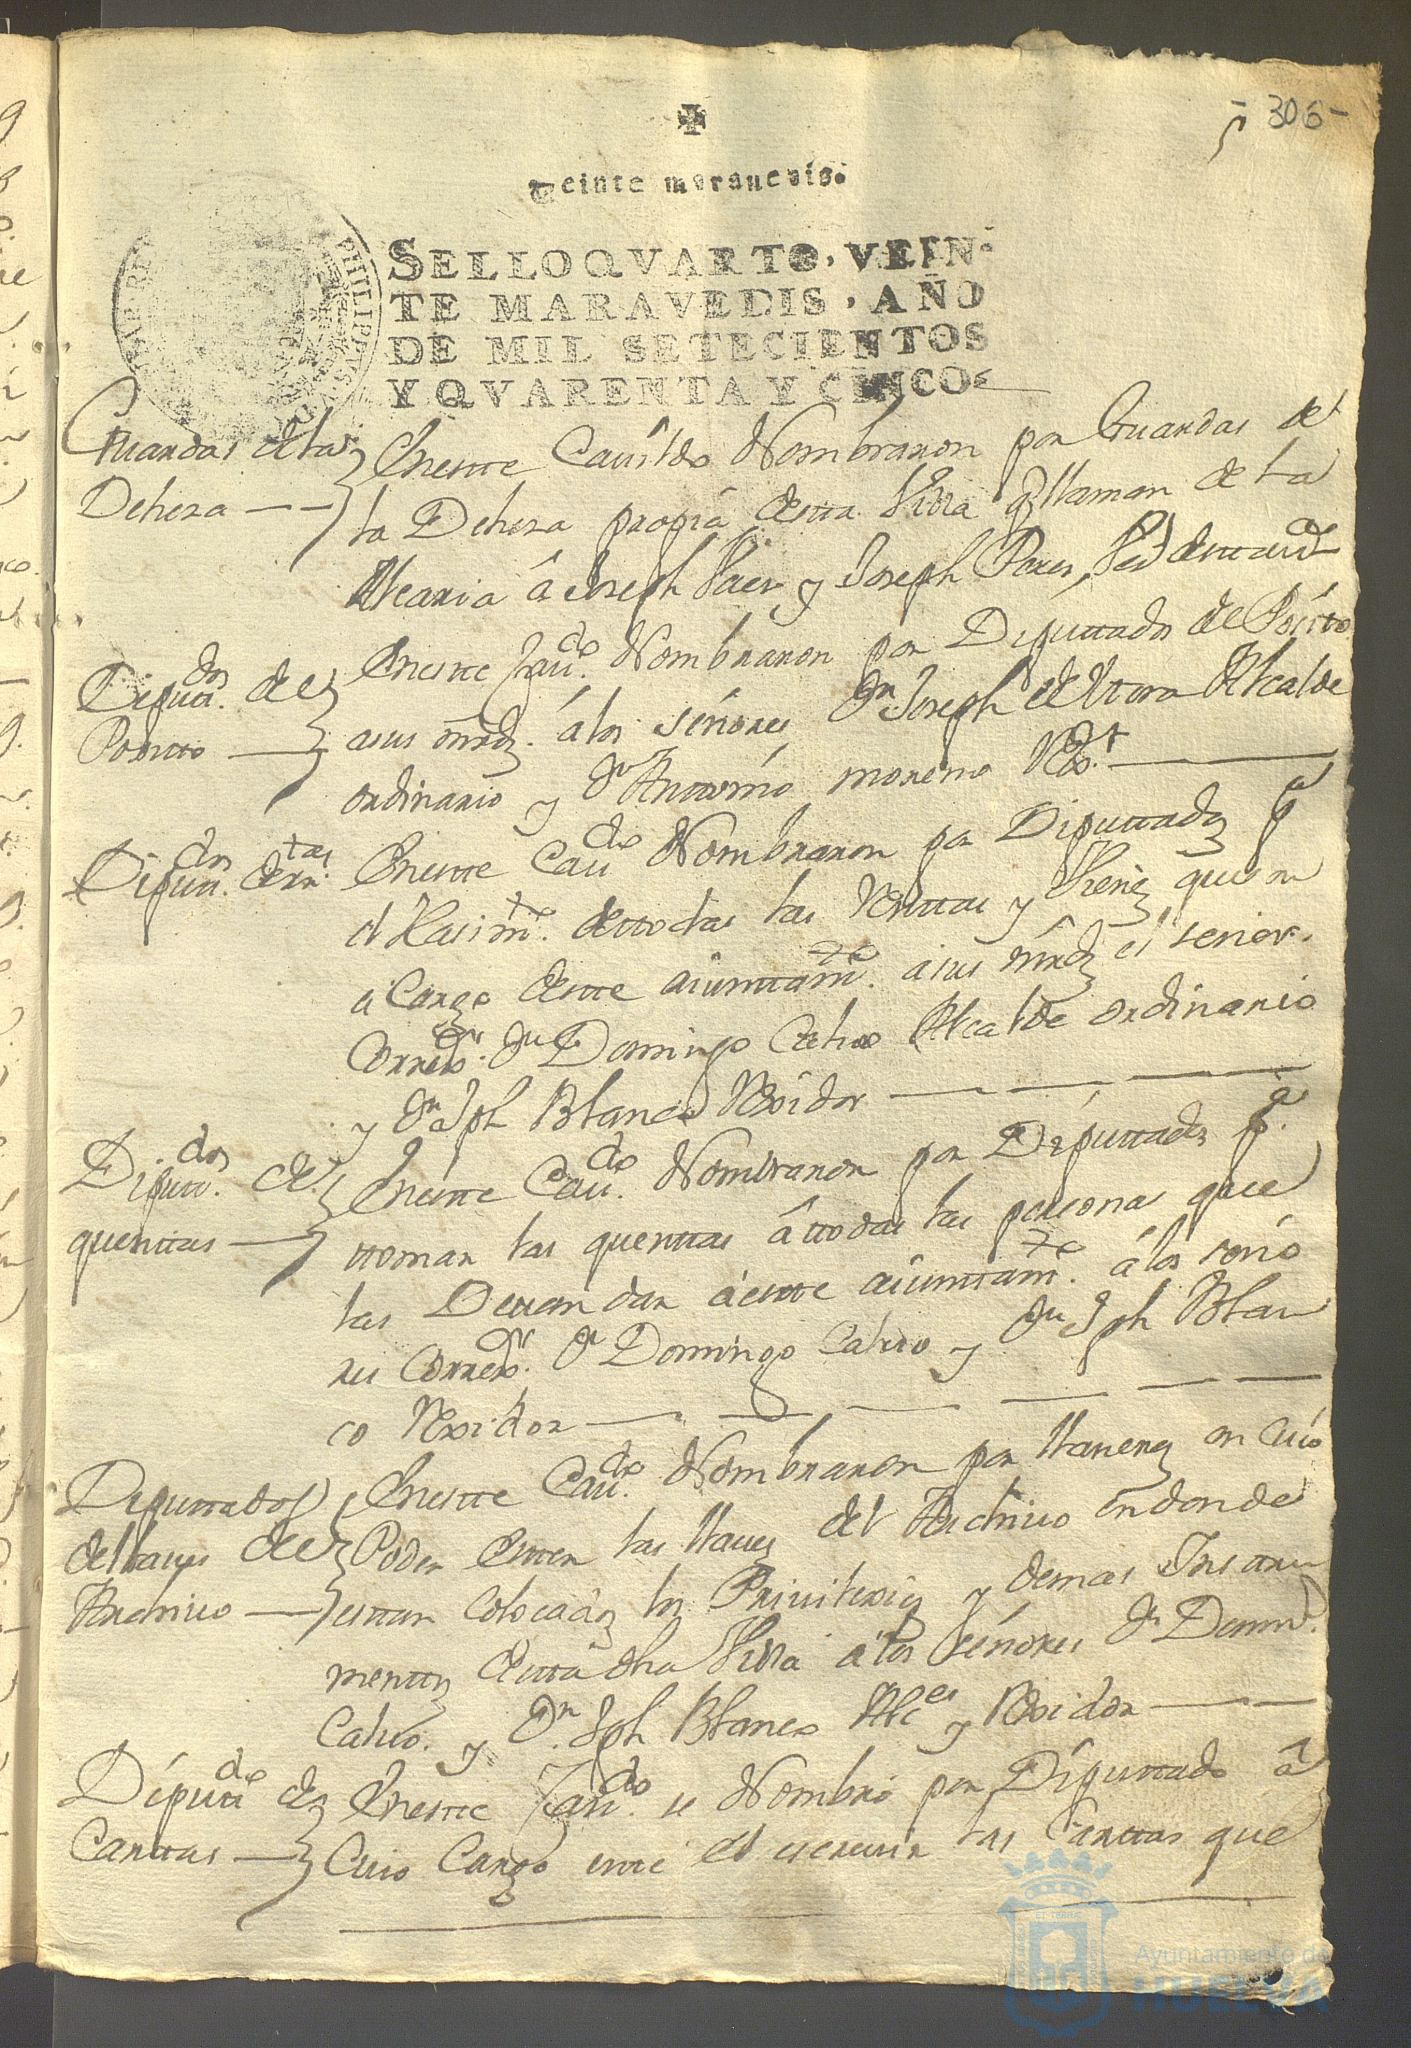 306
Veinte maravedis.
SELLO QVARTO, VEIN-
TE MARAVEDIS, AÑO
DE MIL SETECIENTOS
Y QVARENTA Y CINCO
PHILIPPVS
Guardas de la
Dehesa
En este Cauildo Nombraron por Guardas de
la Dehesa propia desta Villa q llaman de la
Alcaria â Joseph Paer y Joseph Peres,
Diputdos de
Posito
En este Caudo Nombraron por Diputtados de Posito
a sus mrds. á los señores Dn Joseph de Mora Alcalde
ordinario y Dn Antonio moreno
Diputdos de rtas
En este Caudo Nombraron por Diputtados pa
el Hasimto de ttodas las Renttas y Vienes que son
a Cargo deste aiunttamto a sus mrds el señor
Corredor Dn Domingo Calvo Alcalde ordinario
y Dn Jph Blanco Rexidor
Diputdos de
quenttas
En este Caudo Nombraron por Diputtados pa
ttomar las quenttas â ttodas las personas que
las Deuan dar á este aiunttamto á los seño
res Corredor Dn Domingo Calvo y Dn Jph Blan
co Rexidor
Diputtados
de llaues de el
Archiuo
En este Caudo Nombraron por llaueros en Cuio
Poder esten las llaues del Archiuo en donde
esttan Colocados los Priuilexios y demas Instru
menttos desta dha Villa á los señores Dn Domingo
Calvo. y Dn Jph Blanco Alces y Rexidor
Diputdo de
Carttas
En este Caudo se Nombró por Diputtado â
Cuio Cargo este el escreuir las Carttas que
Ayuntamiento de
HUELVA